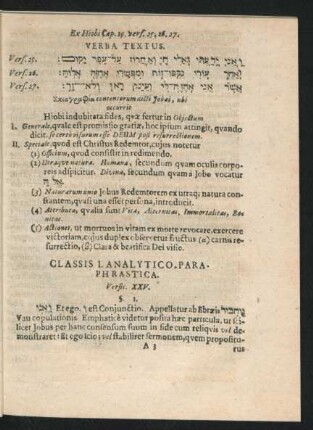 Ex Hiobi Cap. 19. vers. 25, 26. 27.
VERBA TEXTUS.
Vers. 25. וַאֲנִי יָדַעְתִּי גֹּאֲלִי חָי וְאַחֲרוֹן עַל־עָפָר יָקוּם:
Vers. 26. וְאַחַר עוֹרִי נִקְּפוּ־זֹאת וּמִבְּשָׂרִי אֶחֱזֶה אֱלוֹהַּ:
Vers. 27. אֲשֶׁר אֲנִי אֶחֱזֶה־לִּי וְעֵינַי רָאוּ וְלֹא־זָר:
Σκιαγραφία contentorum est Jobæi, ubi
occurrit
Hiobi indubitata fides, quæ fertur in Objectum
I. Generale, quale est promissio gratiæ, hoc ipsum attingit, quando
dicit, se certò visurum esse DEUM post resurrectionem
II. Speciale, quod est Christus Redemtor, cujus notetur
(1) Officium, quod consistit in redimendo.
(2) Utraque natura. Humana, secundum quam oculis corpo-
reis adspicitur. Divina, secundum quam à Jobo vocatur
(3) Naturarum unio Jobus Redemtorem ex utraq; natura con-
stantem, quasi una esset persona, introducit.
(4) Attributa, qualia sunt: Vita, Æternitas, Immortalitas, Bo-
nitas.
(5) Actiones, ut mortuos in vitam ex morte revocare, exercere
victoriam, cujus duplex observetur fructus (α) carnis re-
surrectio, (β) Clara & beatifica Dei visio.
CLASSIS I. ANALYTICO-PARA-
PHRASTICA.
Versic. XXV.
§. 1.
וַאֲנִי Et ego. ו est Conjunctio. Appellatur ab Ebræis
Vau copulationis. Emphaticè videtur posita hæc particula, ut sci-
licet Jobus per hanc consensum suum in fide cum reliquis vel de-
monstraret: Et ego scio; vel stabiliret sermonem, quem propositu-
A 3 rus